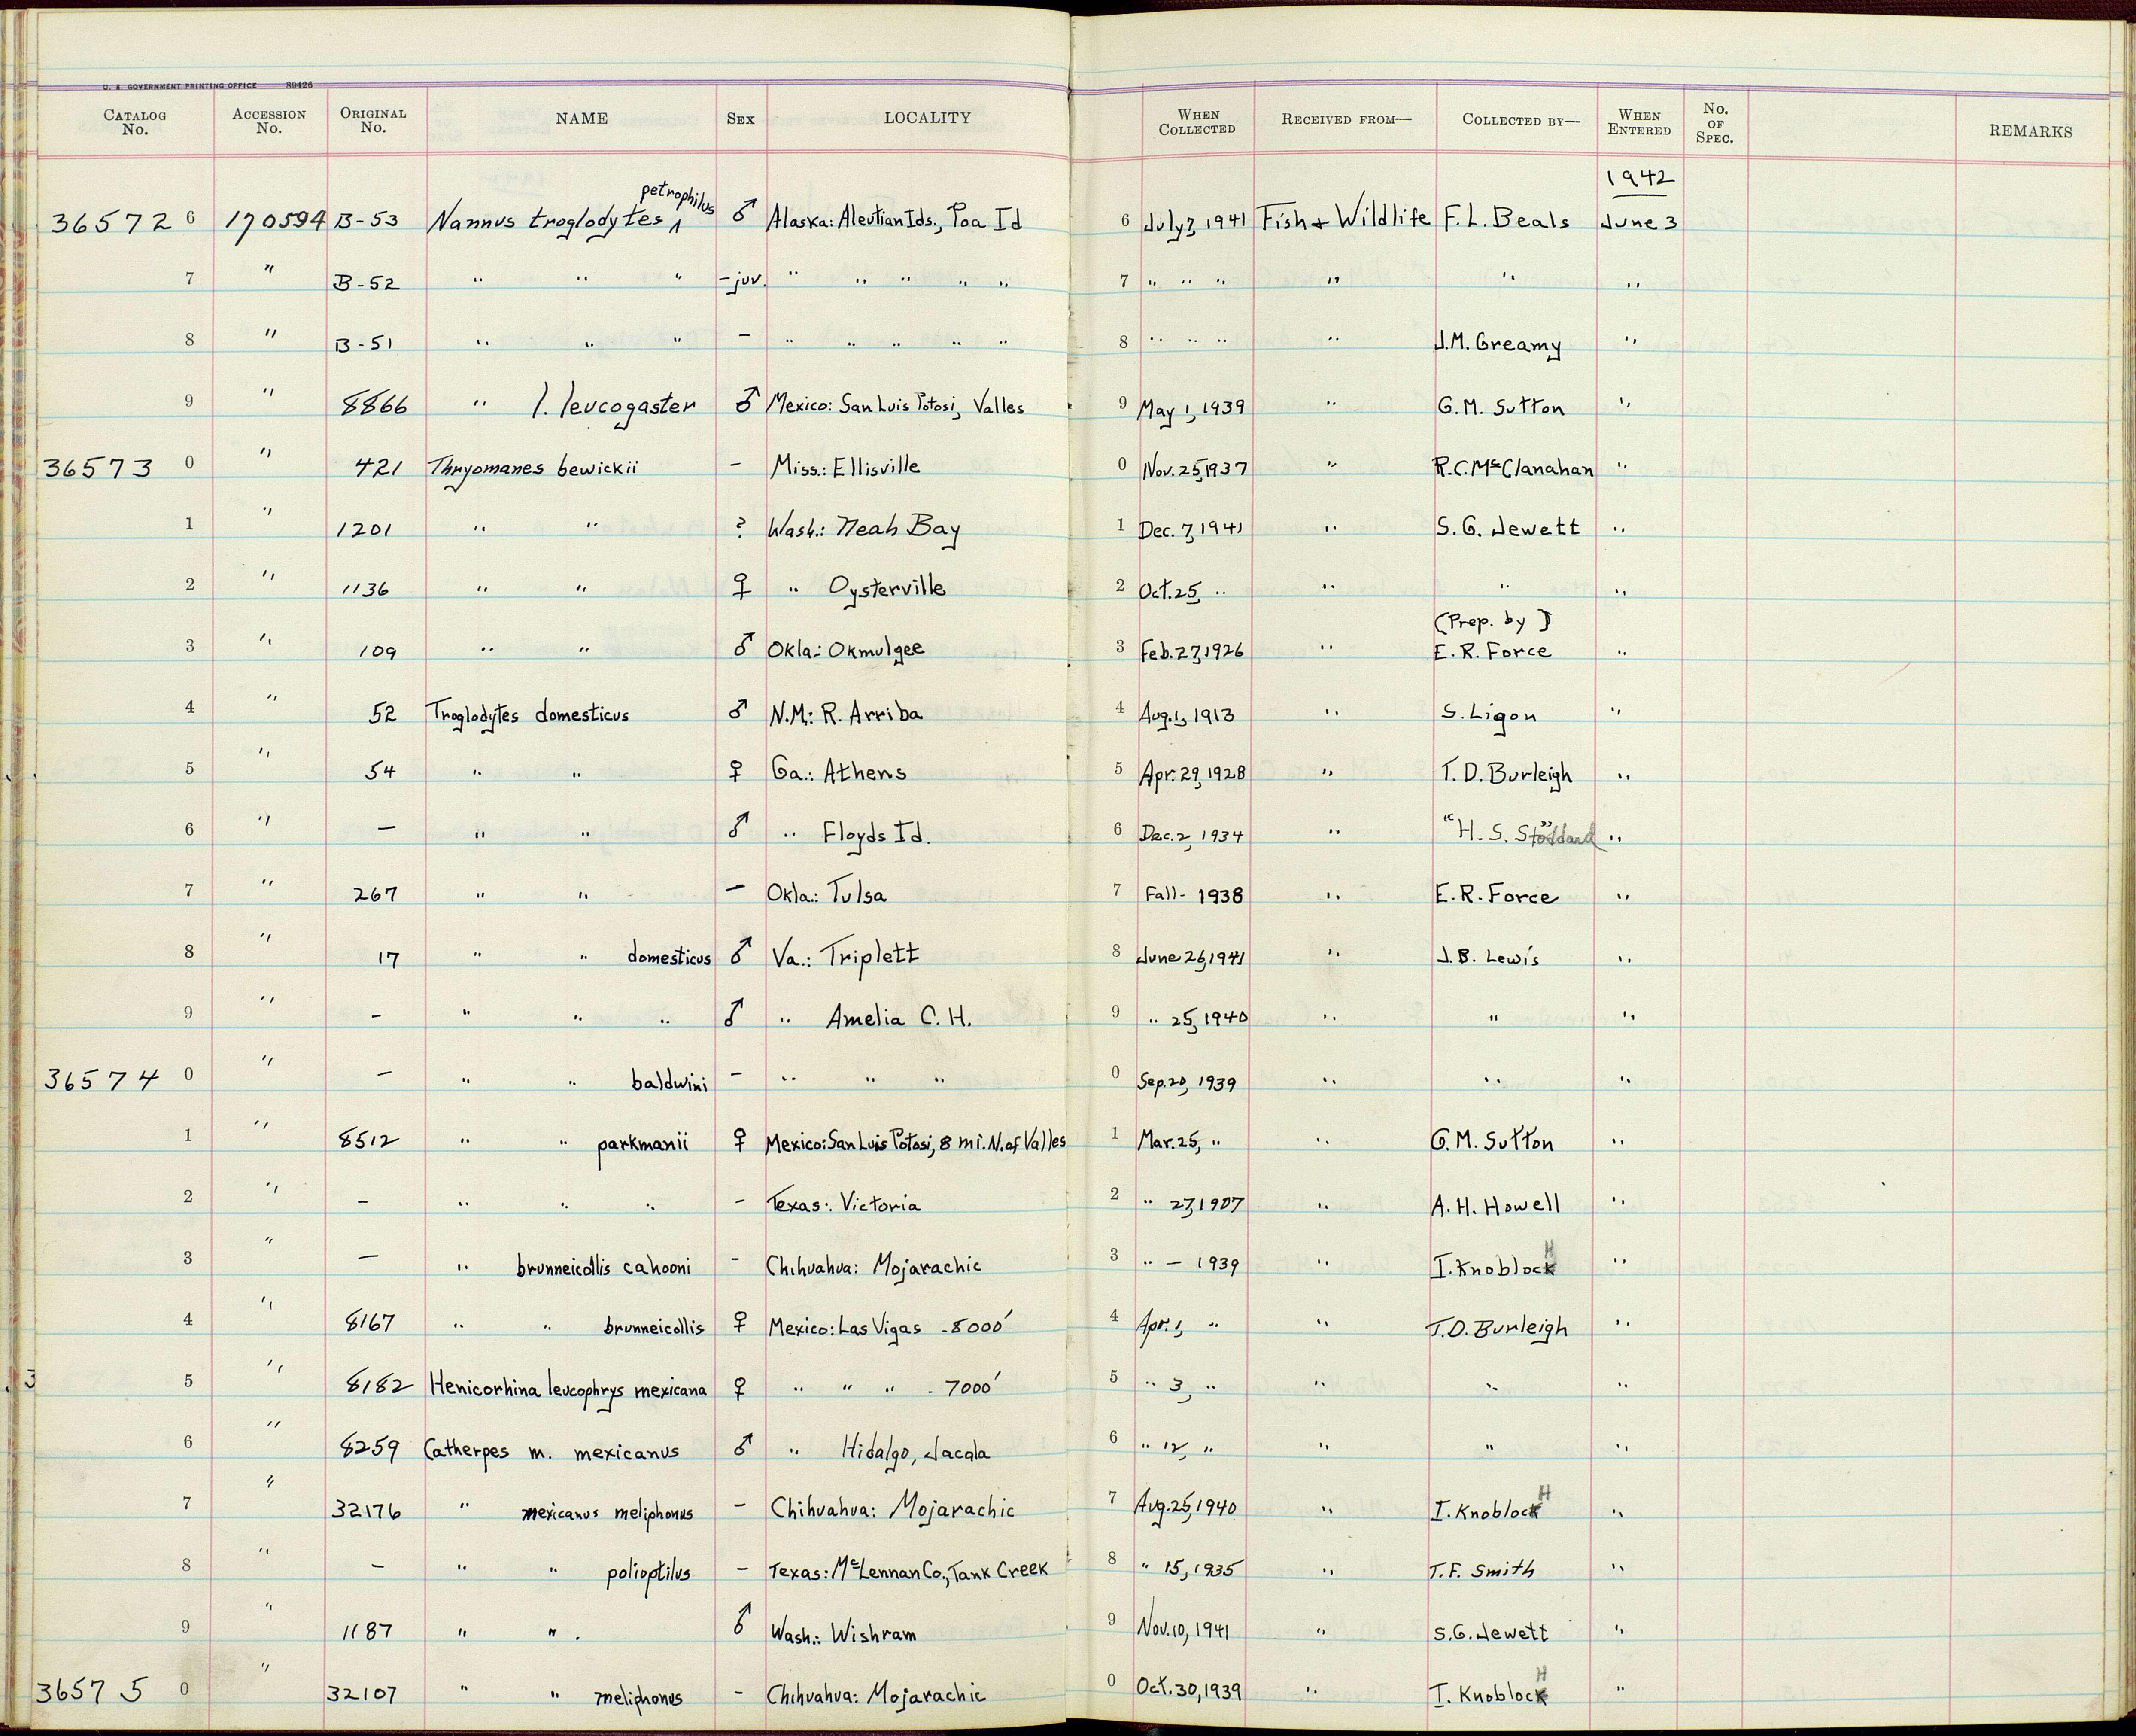 U. S. GOVERNMENT PRINTING OFFICE 89426
CATALOG No. ACCESSION No. ORIGINAL No. NAME SEX LOCALITY WHEN COLLECTED RECEIVED FROM— COLLECTED BY— WHEN ENTERED No. OF SPEC. REMARKS
1942
petrophilus
36572 6 170594 B-53 Nannus troglodytes ^ ♂ Alaska: Aleutian Ids., Poa Id 6 July 7, 1941 Fish & Wildlife F. L. Beals June 3
7 " B-52 " " " - juv. " " " " " 7 " " " " " "
8 " B-51 " " " - " " " " " 8 " " " " J.M. Greamy "
9 " 8866 " l. leucogaster ♂ Mexico: San Luis Potosi, Valles 9 May 1, 1939 " G.M. Sutton "
36573 0 " 421 Thryomanes bewickii - Miss.: Ellisville 0 Nov. 25, 1937 " R.C. McClanahan "
1 " 1201 " " ? Wash.: Neah Bay 1 Dec. 7, 1941 " S. G. Jewett "
2 " 1136 " " ♀ " Oysterville 2 Oct. 25, " " " "
(Prep. by)
3 " 109 " " ♂ Okla.: Okmulgee 3 Feb. 27, 1926 " E. R. Force "
4 " 52 Troglodytes domesticus ♂ N.M.: R. Arriba 4 Aug. 1, 1913 " S. Ligon "
5 " 54 " " ♀ Ga.: Athens 5 Apr. 29, 1928 " T. D. Burleigh "
6 " — " " ♂ " Floyds Id. 6 Dec. 2, 1934 " "H. S. Stoddard" "
7 " 267 " " - Okla.: Tulsa 7 Fall - 1938 " E. R. Force "
8 " 17 " " domesticus ♂ Va.: Triplett 8 June 26, 1941 " J. B. Lewis "
9 " - " " " ♂ " Amelia C. H. 9 " 25, 1940 " " "
36574 0 " — " " baldwini - " " " 0 Sep. 20, 1939 " " "
1 " 8512 " " parkmanii ♀ Mexico: San Luis Potosi, 8 mi. N. of Valles 1 Mar. 25, " " G. M. Sutton "
2 " - " " " - Texas: Victoria 2 " 27, 1907 " A. H. Howell "
3 " — " brunneicollis cahooni - Chihuahua: Mojarachic 3 " — 1939 " I. KnoblocH "
4 " 8167 " " brunneicollis ♀ Mexico: Las Vigas - 8000' 4 Apr. 1, " " T. D. Burleigh "
5 " 8182 Henicorhina leucophrys mexicana ♀ " " " - 7000' 5 " 3, " " " "
6 " 8259 Catherpes m. mexicanus ♂ " Hidalgo, Jacala 6 " 12, " " " "
7 " 32176 " mexicanus meliphonus - Chihuahua: Mojarachic 7 Aug. 25, 1940 " I. KnoblocH "
8 " - " " polioptilus - Texas: McLennan Co., Tank Creek 8 " 15, 1935 " T. F. Smith "
9 " 1187 " " . ♂ Wash.: Wishram 9 Nov. 10, 1941 " S. G. Jewett "
36575 0 " 32107 " " meliphonus - Chihuahua: Mojarachic 0 Oct. 30, 1939 " I. KnoblocH "